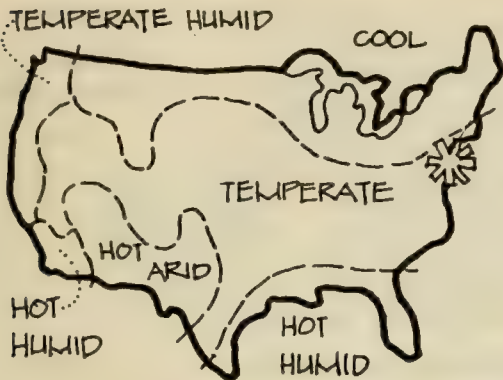 TEMPERATE HUMID
COOL
TEMPERATE
HOT
ARID
HOT
HUMID
HOT
HUMID